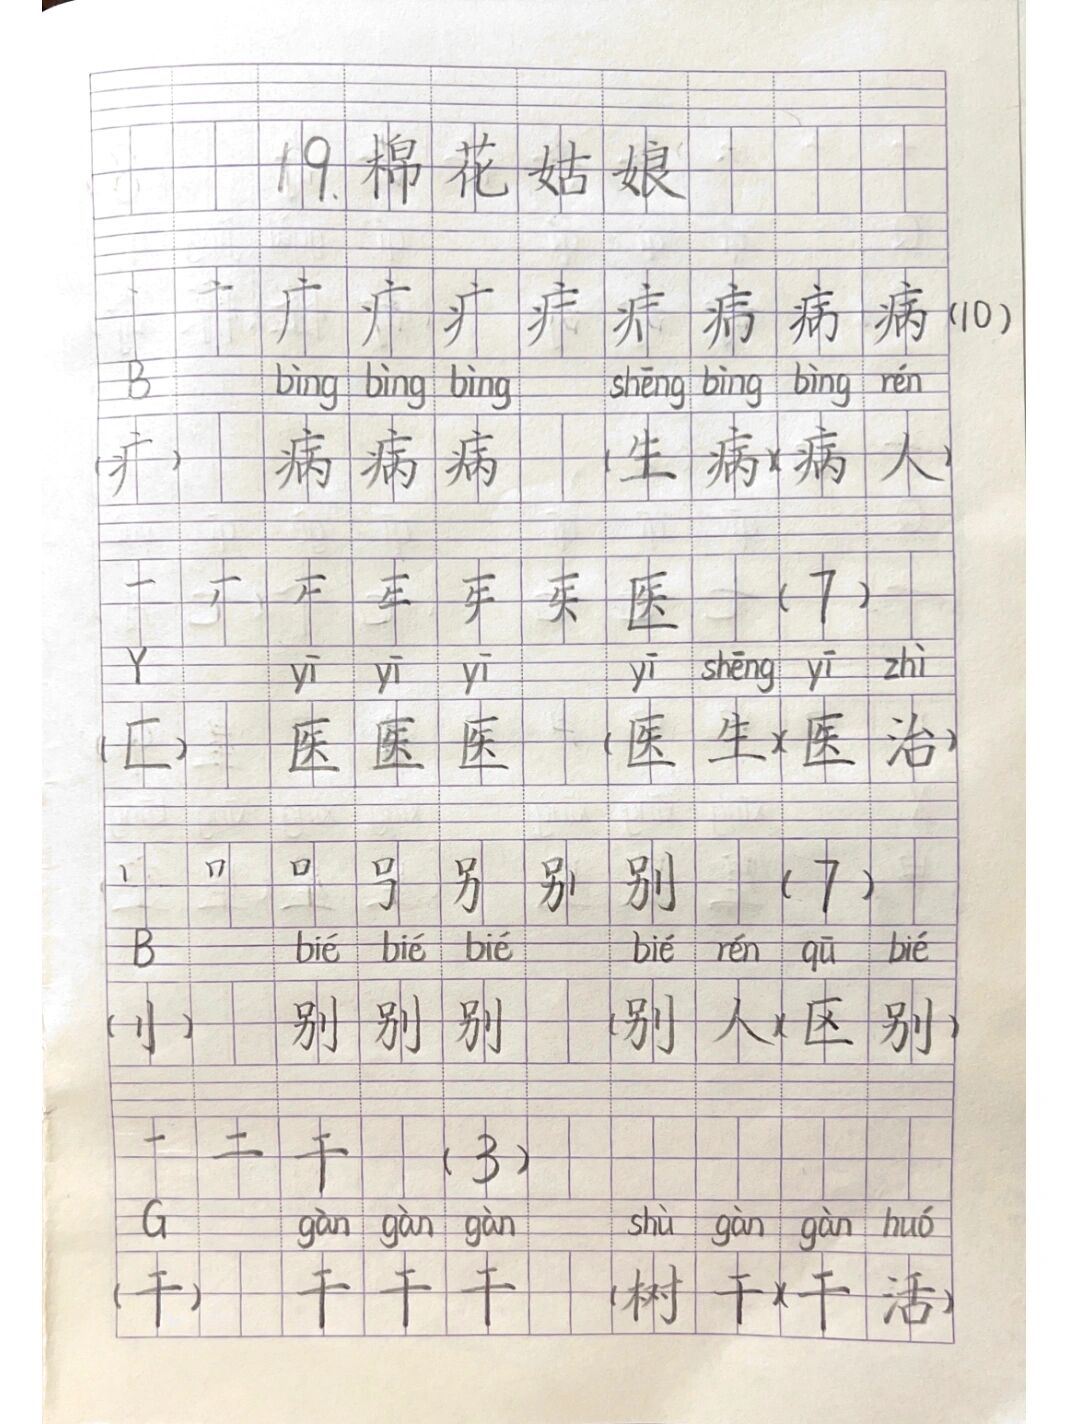 19.棉花姑娘
丶 亠 广 疒 疒 疒 疒 病 病 病 (10)
B bìng bìng bìng shēng bìng bìng rén
(疒) 病 病 病 (生病)(病人)
一 医 (7)
Y yī yī yī yī shēng yī zhì
(匚) 医 医 医 (医生)(医治)
丨 口 号 另 别 别 (7)
B bié bié bié bié rén qū bié
(刂) 别 别 别 (别人)(区别)
一 二 干 (3)
G gàn gàn gàn shù gàn gàn huó
(干) 干 干 干 (树干)(干活)